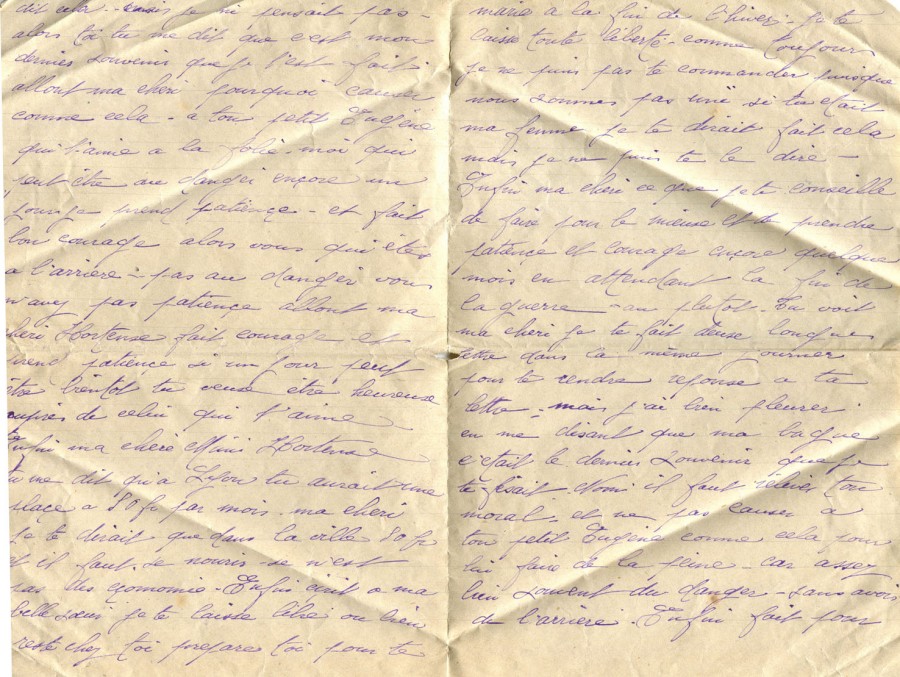 dit cela - mais je ni pensait pas -
alors toi tu me dit que c'est mon
dernier souvenir que je t'est fait
allont ma cheri pourquoi causer
comme cela - a ton petit Eugene
qui t'aime a la folie - moi qui
peut être au danger encore un
jour je prend patience - et fait
bon courage alors vous qui êtes
a l'arriere - pas au danger vous
n'avez pas patience allont ma
cheri Hortense fait courage et
prend patience si un jour peut
être bientot tu veuse etre heureuse
aupres de celui qui t'aime -
Enfin ma cheri Mimi Hortense
tu me dit qu'a Lyon tu aurait une
plaçe a 80 fr par mois. ma cheri
je te dirait que dans la ville 80 fr
et il faut se nourir - se n'est
pas des economie - Enfin ecrit a ma
belle soeur je te laisse libre ou bien
reste chez toi prepare toi pour te
marie a la fin de l'hiver - je te
laisse toute liberté - comme toujours
je ne puis pas te commander puisque
nous sommes pas uni si tu etait
ma femme je te dirait fait cela
mais je ne puis te le dire -
Enfin ma cheri ce que je te conseille
de faire pour le mieuse est de prendre
patience et courage encore quelque
mois en attendant la fin de
la guerre - au plutot. Tu voit
ma cheri je te fait deuse longue
lettre dans la même journer
pour te rendre reponse a ta
lettre - mais j'ai bien pleurer
en me disant que ma bague
c'etait le dernier souvenir que je
te fesait. Noni il faut relever ton
moral - et ne pas causer a
ton petit Eugène comme cela pour
lui faire de la peine - car assez
bien souvent du danger - sans avoir
de l'arriere - Enfin fait pour